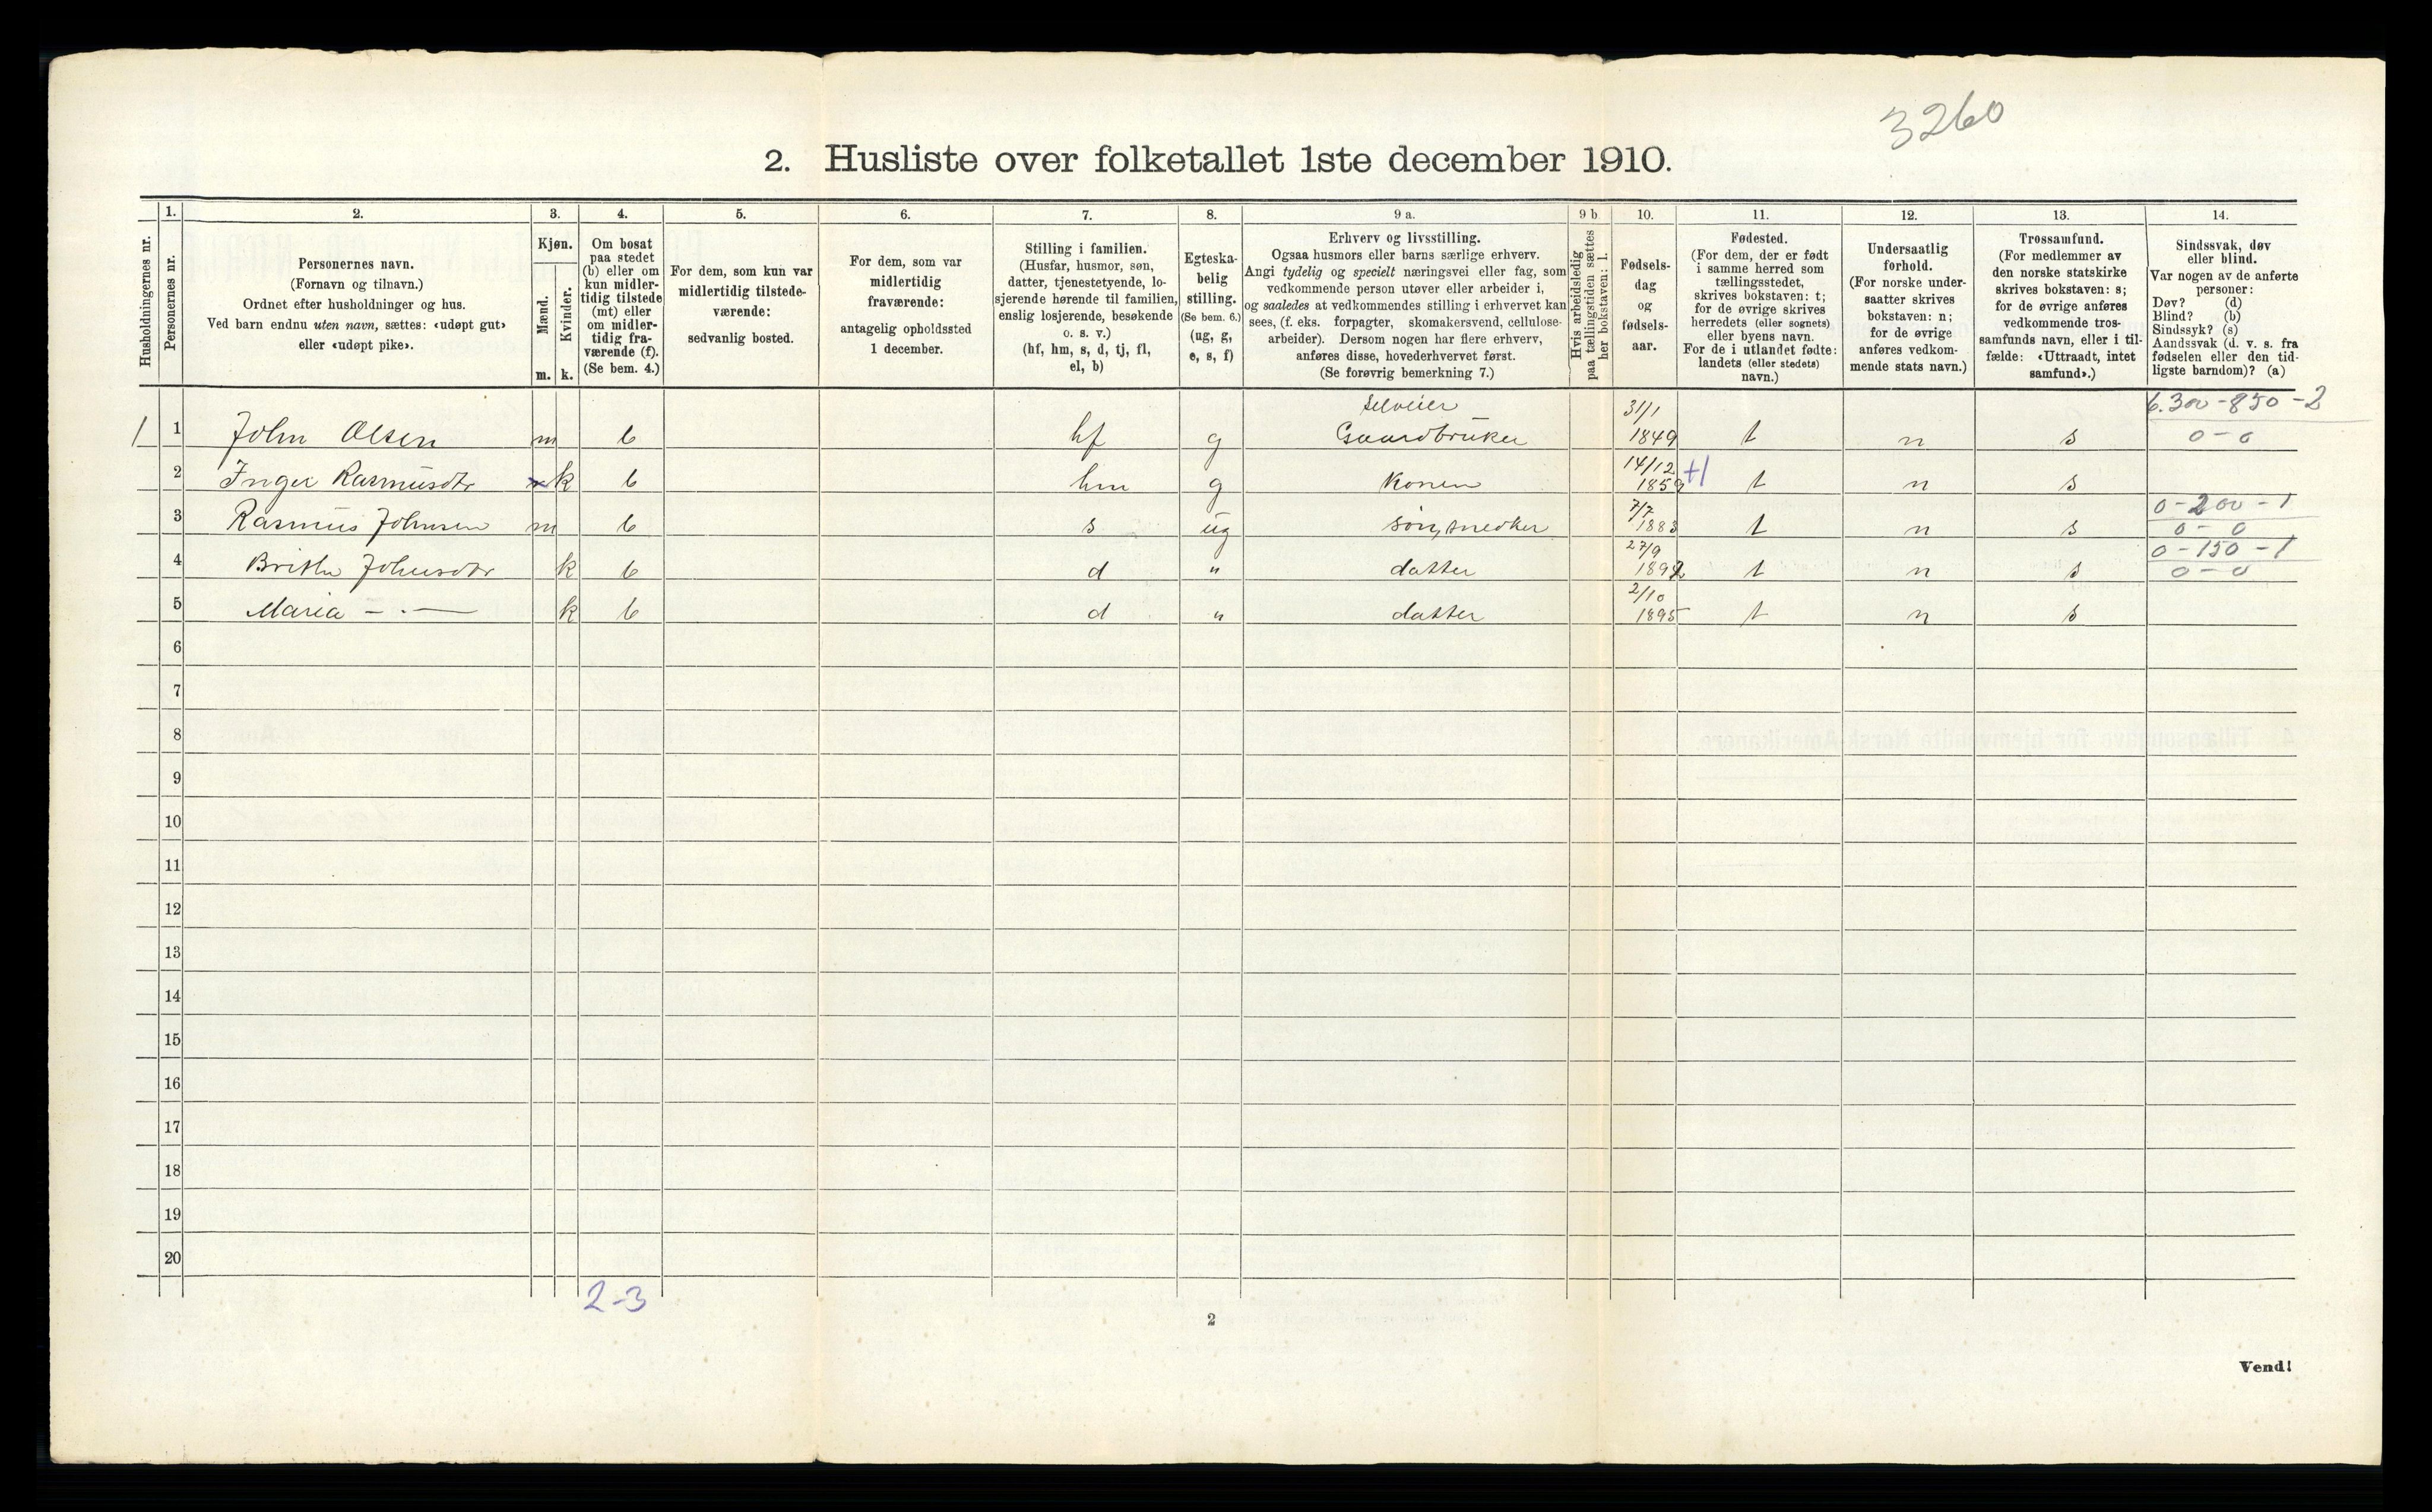 3260
2. Husliste over folketallet 1ste december 1910.
Husholdningernes nr.
1.
Personernes nr.
2.
Personernes navn.
(Fornavn og tilnavn.)
Ordnet efter husholdninger og hus.
Ved barn endnu uten navn, sættes: «udøpt gut»
eller «udøpt pike».
3.
Kjøn.
Mænd.
Kvinder.
m. k.
4.
Om bosat
paa stedet
(b) eller om
kun midler-
tidig tilstede
(mt) eller
om midler-
tidig fra-
værende (f).
(Se bem. 4.)
5.
For dem, som kun var
midlertidig tilstede-
værende:
sedvanlig bosted.
6.
For dem, som var
midlertidig
fraværende:
antagelig opholdssted
1 december.
7.
Stilling i familien.
(Husfar, husmor, søn,
datter, tjenestetyende, lo-
sjerende hørende til familien,
enslig losjerende, besøkende
o. s. v.)
(hf, hm, s, d, tj, fl,
el, b)
8.
Egteska-
belig
stilling.
(Se bem. 6.)
(ug, g,
e, s, f)
9 a.
Erhverv og livsstilling.
Ogsaa husmors eller barns særlige erhverv.
Angi tydelig og specielt næringsvei eller fag, som
vedkommende person utøver eller arbeider i,
og saaledes at vedkommendes stilling i erhvervet kan
sees, (f. eks. forpagter, skomakersvend, cellulose-
arbeider). Dersom nogen har flere erhverv,
anføres disse, hovederhvervet først.
(Se forøvrig bemerkning 7.)
9 b
Hvis arbeidsledig
paa tællingstiden sættes
her bokstaven: l.
10.
Fødsels-
dag
og
fødsels-
aar.
11.
Fødested.
(For dem, der er født
i samme herred som
tællingsstedet,
skrives bokstaven: t;
for de øvrige skrives
herredets (eller sognets)
eller byens navn.
For de i utlandet fødte:
landets (eller stedets)
navn.)
12.
Undersaatlig
forhold.
(For norske under-
saatter skrives
bokstaven: n;
for de øvrige
anføres vedkom-
mende stats navn.)
13.
Trossamfund.
(For medlemmer av
den norske statskirke
skrives bokstaven: s;
for de øvrige anføres
vedkommende tros-
samfunds navn, eller i til-
fælde: «Uttraadt, intet
samfund».)
14.
Sindssvak, døv
eller blind.
Var nogen av de anførte
personer:
Døv? (d)
Blind? (b)
Sindssyk? (s)
Aandssvak (d. v. s. fra
fødselen eller den tid-
ligste barndom)? (a)
Selveier 31/1 6.300-850-2
1 1 John Olsen m b hf g Gaardbruker 1849 t n s 0-0
14/12 +1
2 Inger Rasmusdtr k b hm g Konen 1859 t n s
7/7 0-200-1
3 Rasmus Johnsen m b s ug søn, snedker 1883 t n s 0-0
27/9 0-150-1
4 Brithe Johnsdtr k b d " datter 1892 t n s 0-0
2/10
5 Maria -.- k b d " datter 1895 t n s
6
7
8
9
10
11
12
13
14
15
16
17
18
19
20
2-3
2
Vend!